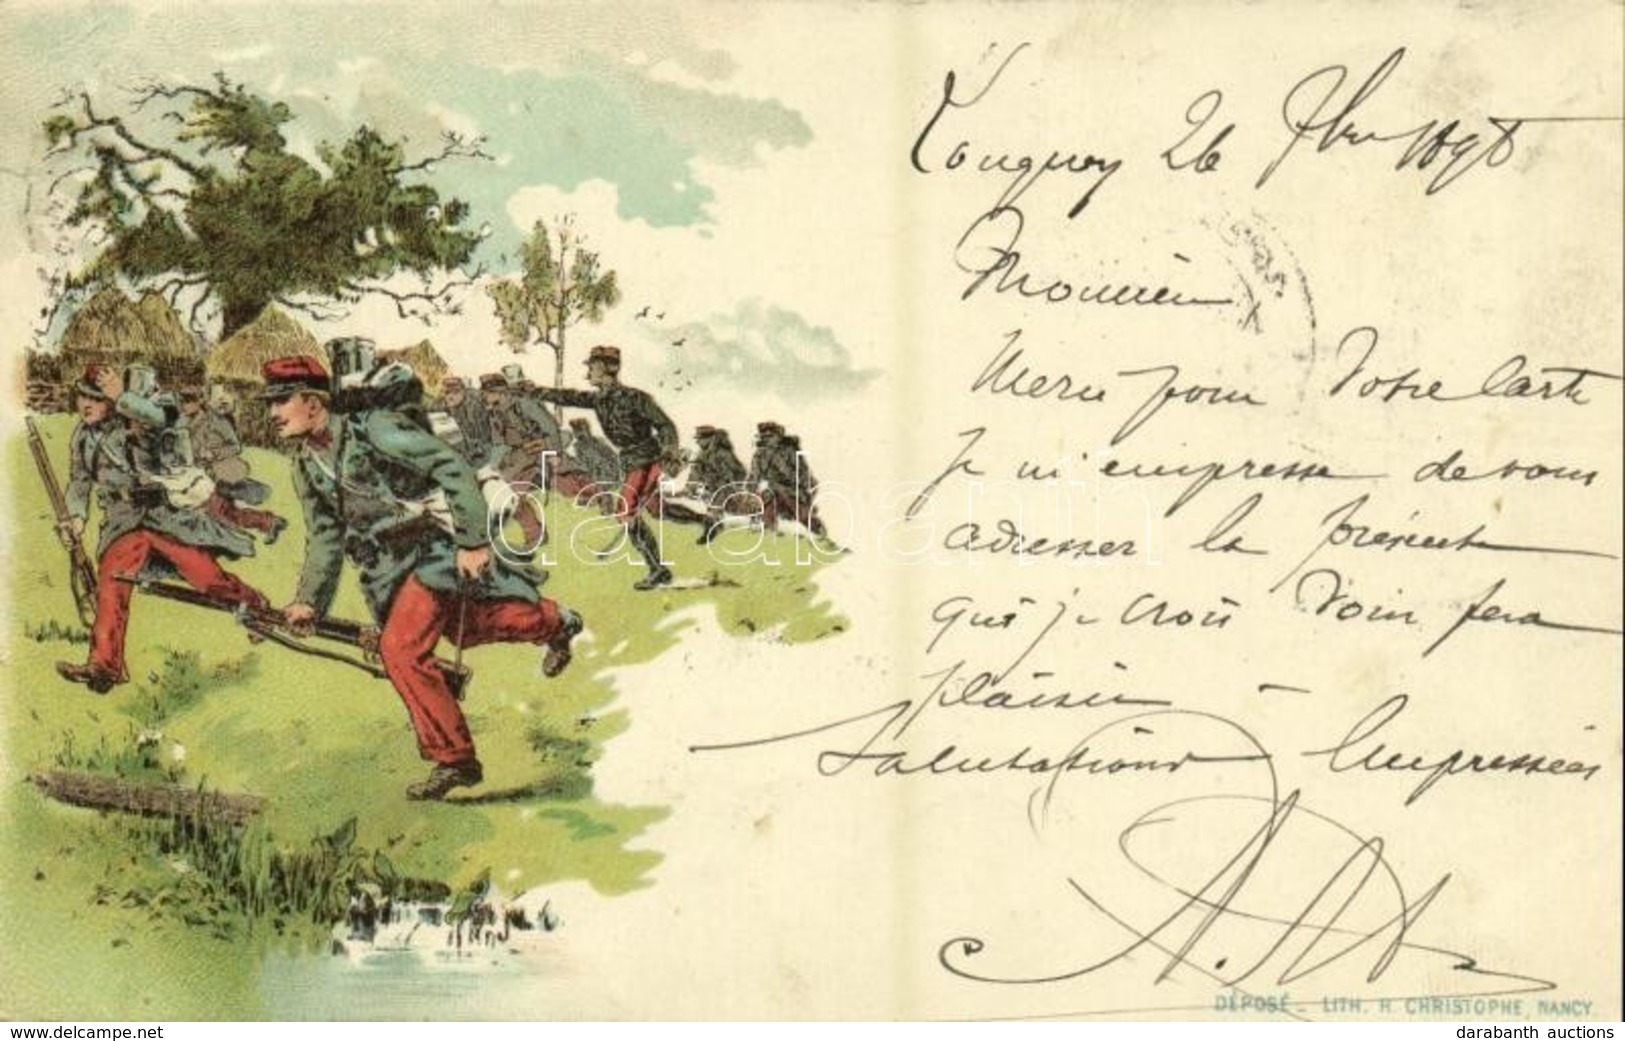 Longuyon 26 7bre 1898
Monsieur,
Merci pour Votre Carte
Je m'empresse de vous
adresser la présente
qui je crois Vous fera
plaisir –
Salutations Empressées
DÉPOSÉ _ LITH. H. CHRISTOPHE, NANCY.
darabanth
www.delcampe.net
darabanth auctions